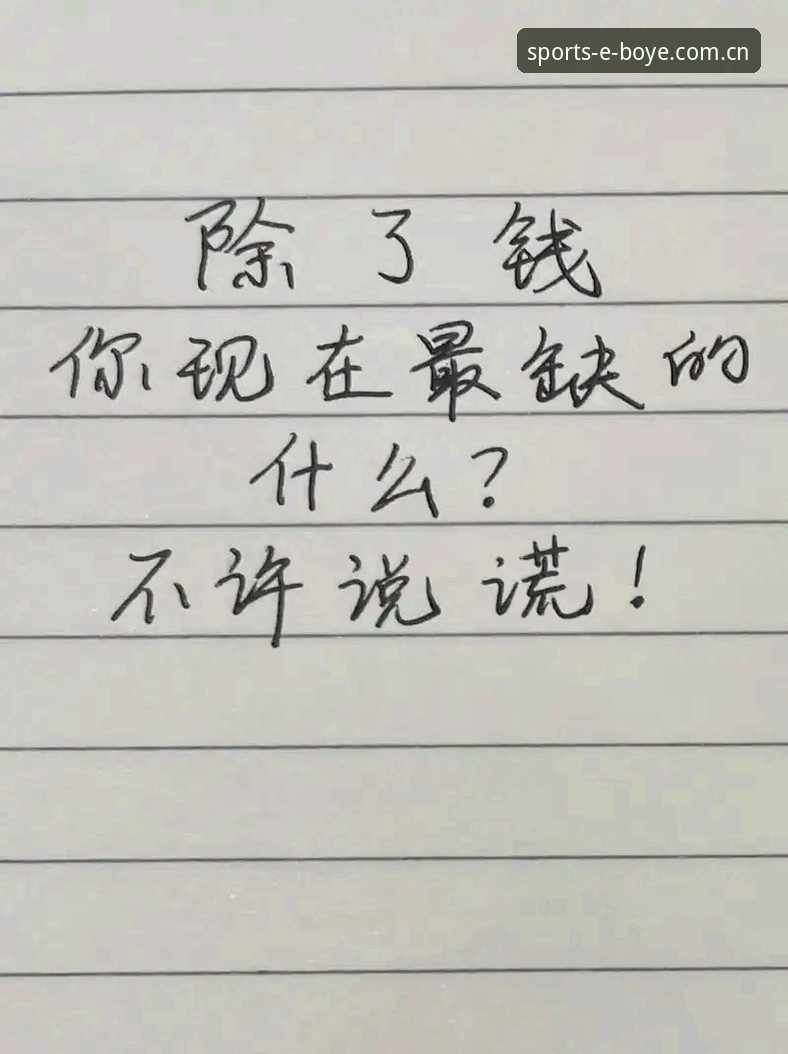 sports-e-boye.com.cn
除了钱
你现在最缺的
什么？
不许说谎！